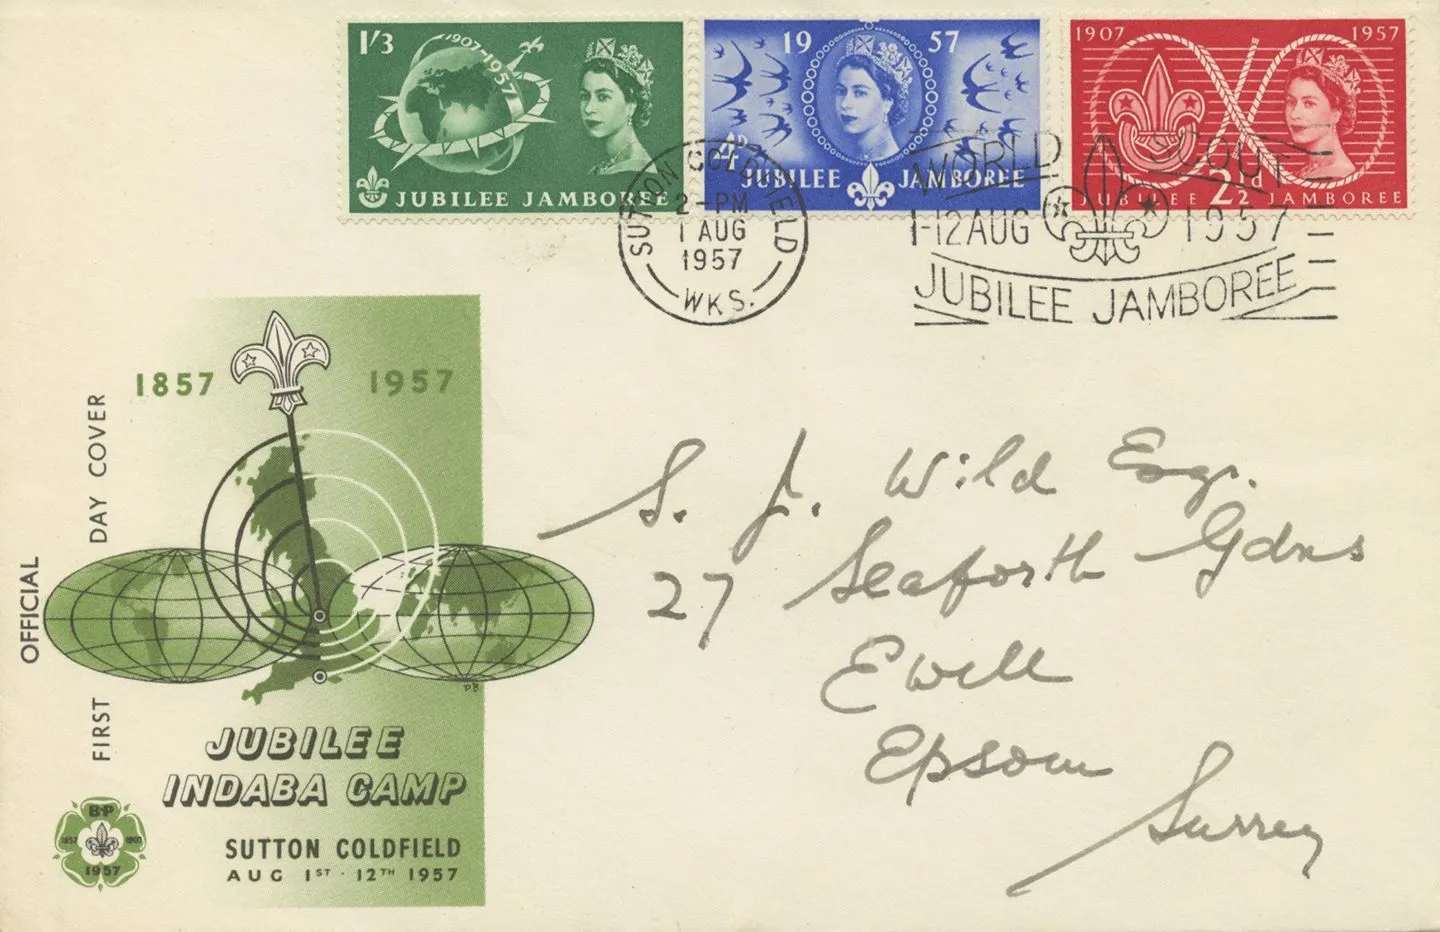 1'3
1907-1957
JUBILEE JAMBOREE
19 57
4D
JUBILEE JAMBOREE
1907 1957
JUBILEE 2½d JAMBOREE
SUTTON COLDFIELD
2-PM
1 AUG
1957
WKS.
WORLD SCOUT
1-12 AUG 1957
JUBILEE JAMBOREE
OFFICIAL
FIRST DAY COVER
1857 1957
PB
JUBILEE
INDABA CAMP
SUTTON COLDFIELD
AUG 1ST · 12TH 1957
B-P
1857 1907
1957
S. J. Wild Esq.
27 Seaforth Gdns
Ewell
Epsom
Surrey